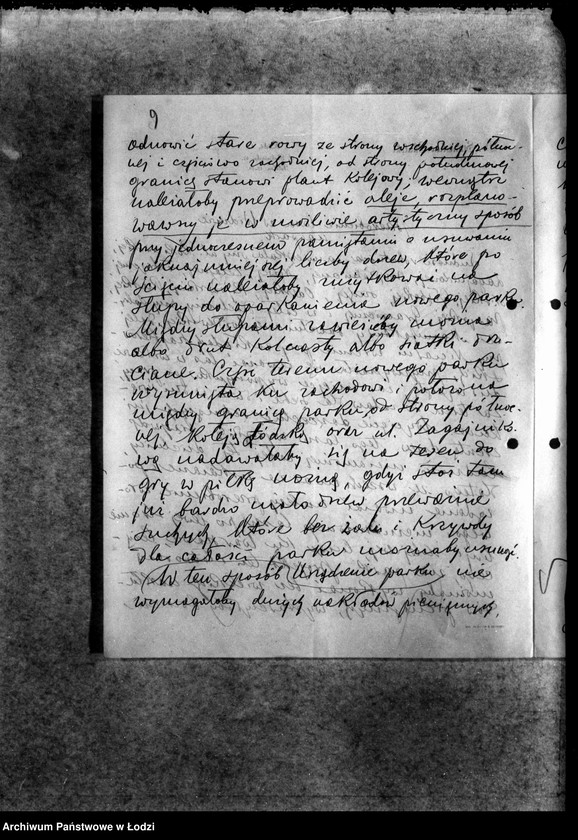 9
odnowić stare rowy ze strony wschodniej, północ-
nej i częściowo zachodniej, od strony południowej
granicę stanowi plant kolejowy, wewnątrz
należałoby przeprowadzić aleje, rozplano-
wawszy je w możliwie artystyczny sposób
przy jednoczesnem pamiętaniu o usuwaniu
jaknajmniejszej liczby drzew, które po
ścięciu należałoby zużytkować na
słupy do oparkanienia nowego parku.
Między słupami zawiesićby można
albo drut kolczasty albo siatki dru-
ciane. Część terenu nowego parku
wysunięta ku zachodowi i położona
między granicą parku, od strony północ-
nej, koleją Łódzką oraz ul. Zagajniko-
wą nadawałaby się na teren do
gry w piłkę nożną, gdyż stoi tam
już bardzo mało drzew przeważnie
suchych, które bez żalu i krzywdy
dla całości parku możnaby usunąć.
W ten sposób urządzenie parku nie
wymagałoby dużych nakładów pieniężnych,
Archiwum Państwowe w Łodzi